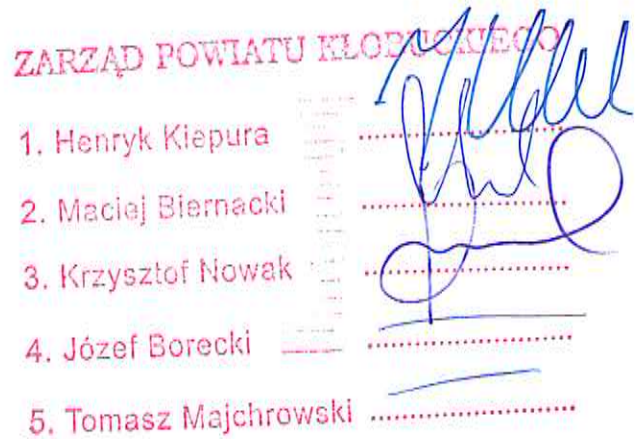 ZARZĄD POWIATU KŁOBUCKIEGO
1. Henryk Kiepura ..............................
2. Maciej Biernacki ..............................
3. Krzysztof Nowak ..............................
4. Józef Borecki ..............................
5. Tomasz Majchrowski ..............................